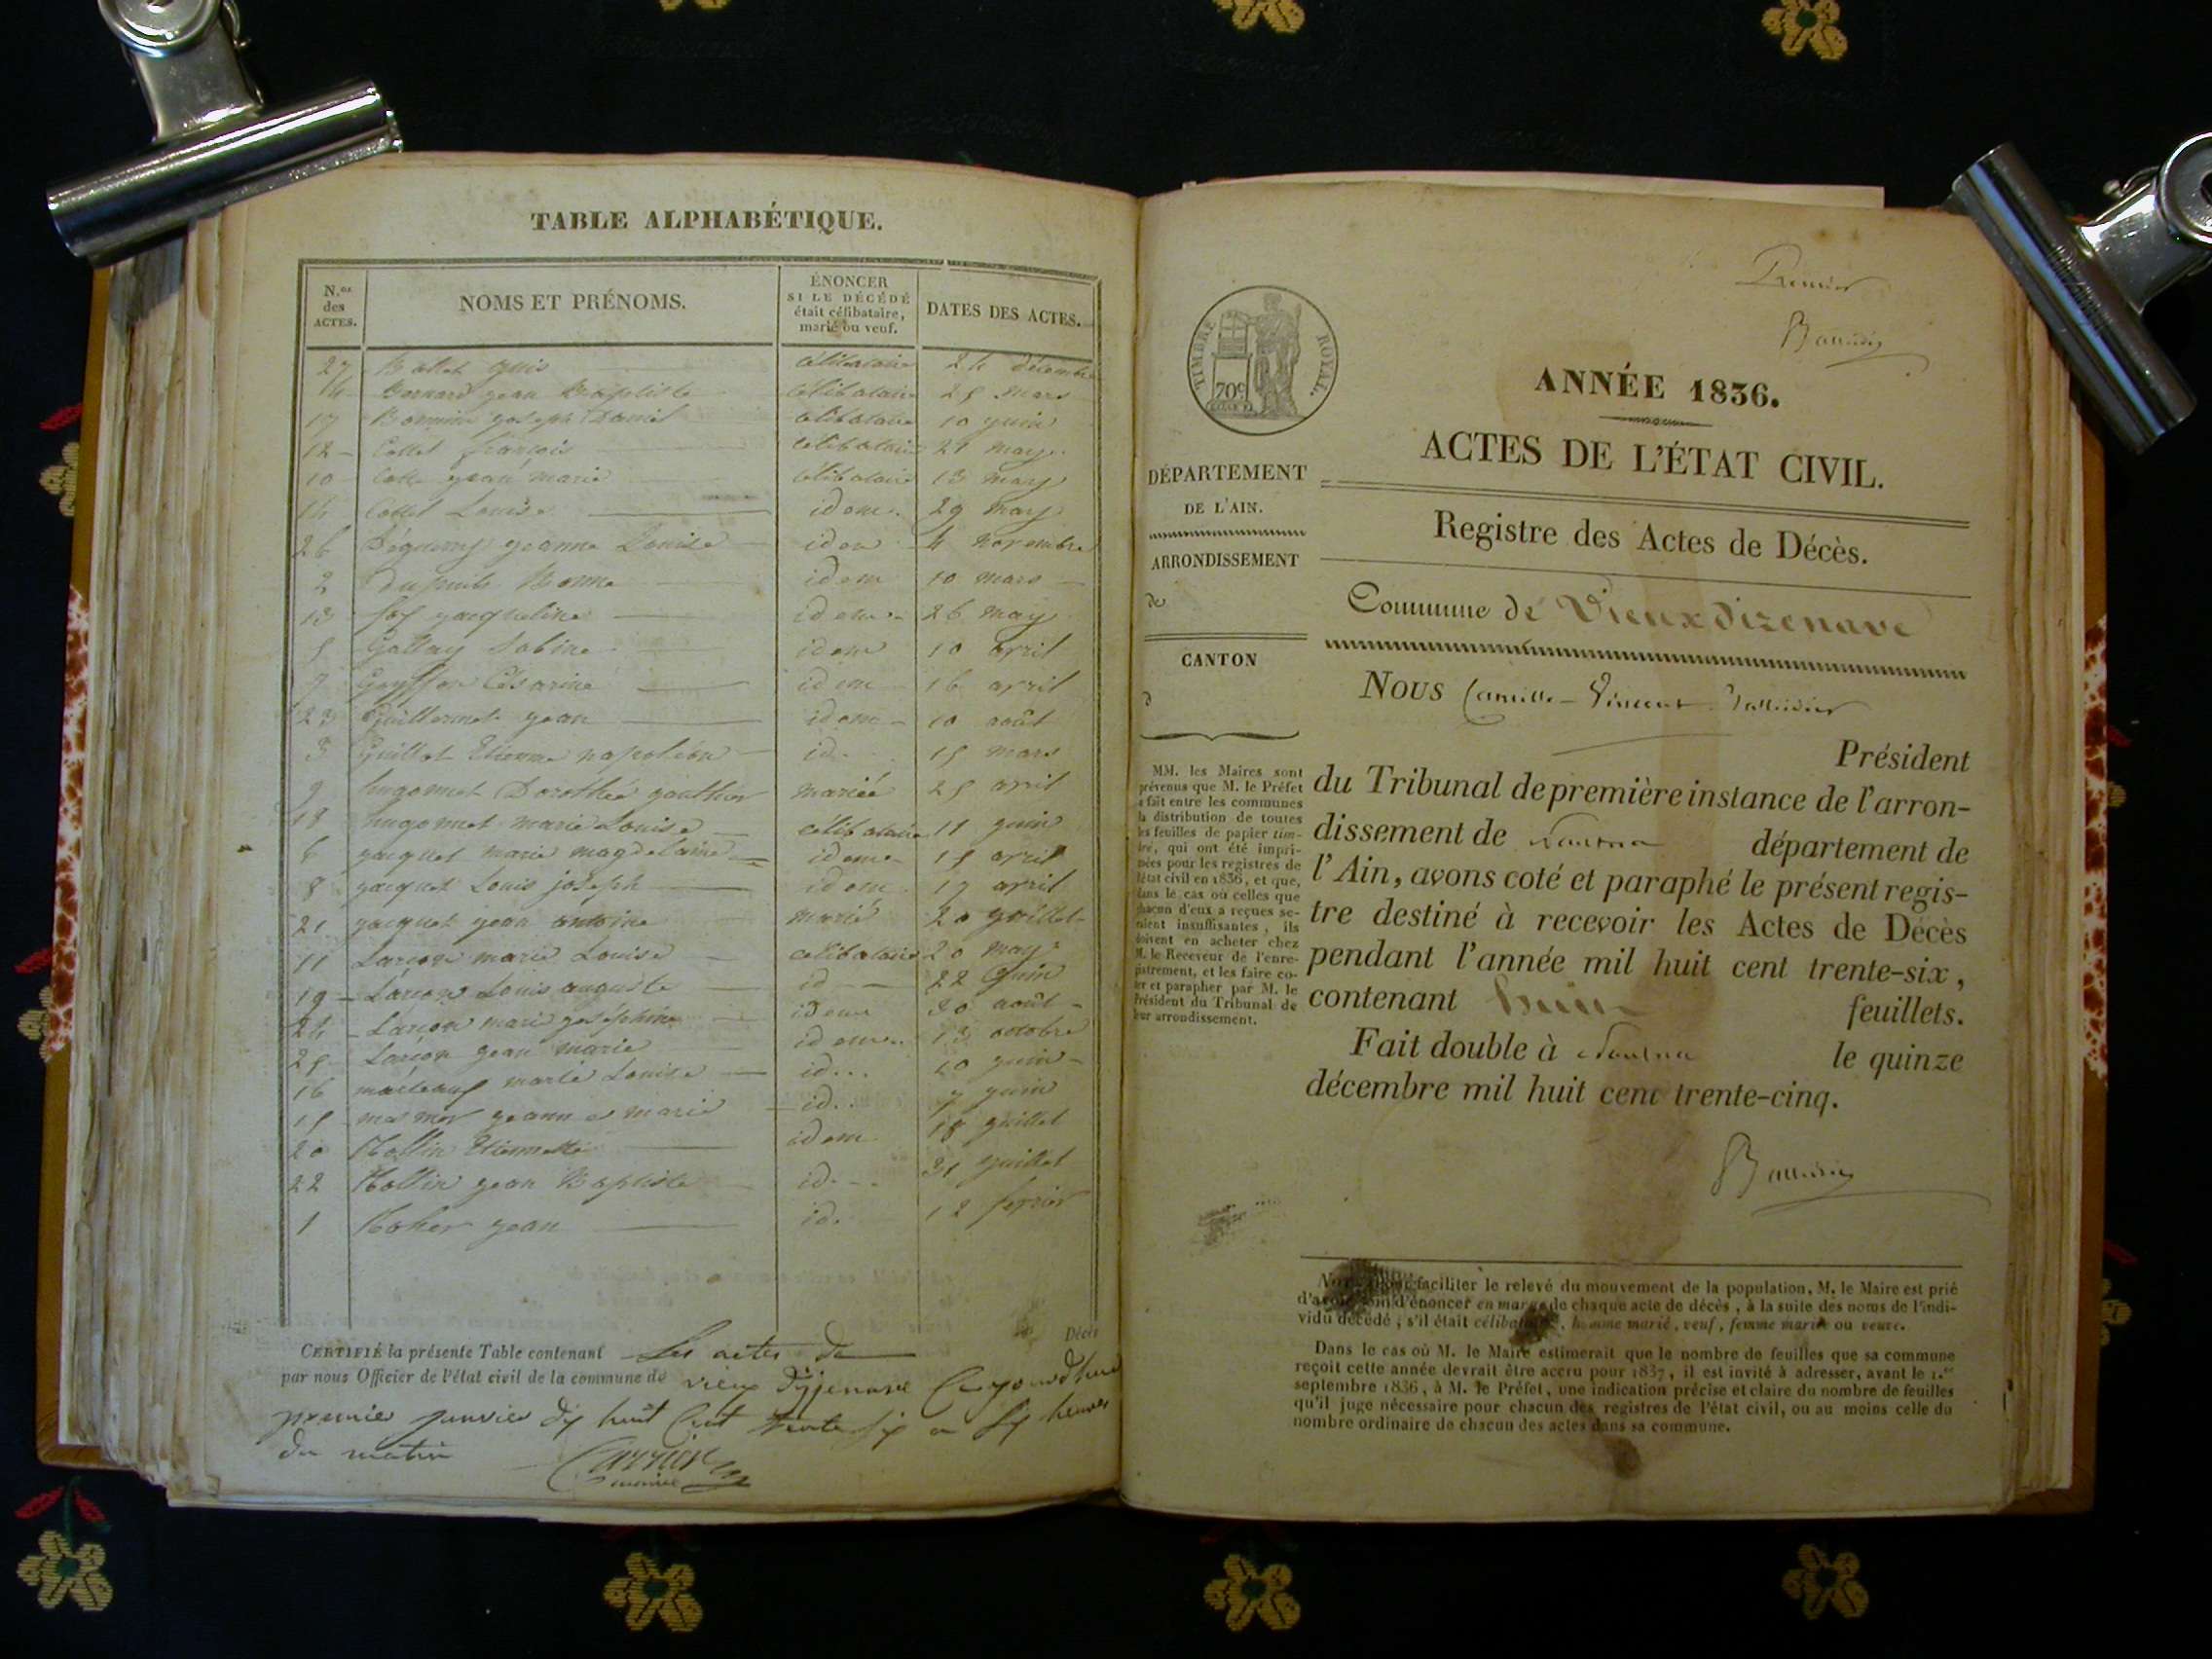 TABLE ALPHABÉTIQUE.
N.os des ACTES.
NOMS ET PRÉNOMS.
ÉNONCER SI LE DÉCÉDÉ était célibataire, marié ou veuf.
DATES DES ACTES.
27 célibataire 24 décembre
14 Bernard jean Baptiste célibataire 25 mars
17 joseph célibataire 10 juin
12 Collet françois célibataire 21 may
10 jean marie célibataire 13 may
14 Collet Louise idem. 29 may
26 jeanne Louise idem 4 novembre
2 Dupuis idem 10 mars
13 jacqueline idem 26 may
5 Gallay Sabine idem 10 avril
7 Césarine idem 16 avril
23 Guillermet jean idem 10 août
3 Guillot Etienne napoléon id. 15 mars
9 hugonnet Dorothée gauthier mariée 25 avril
18 hugonnet marie Louise célibataire 11 juin
6 jacquet marie magdelaine idem 15 avril
8 jacquet Louis joseph idem 17 avril
21 jacquet jean antoine marié 20 juillet
11 Larçon marie Louise célibataire 20 may
19 Larçon Louis auguste id 22 juin
24 Larçon marie joséphine idem 30 août
25 Larçon jean marie idem 13 octobre
16 marie Louise id... 10 juin
15 jeanne marie id.. 7 juin
20 Etiennette idem 18 juillet
22 jean Baptiste id. 31 juillet
1 jean id. 12 fevrier
CERTIFIÉ la présente Table contenant Les actes de Décès
par nous Officier de l'état civil de la commune de vieux
premier janvier huit Cent trente six a heures
du matin
Premier
TIMBRE ROYAL.
70c
ANNÉE 1836.
ACTES DE L'ÉTAT CIVIL.
DÉPARTEMENT
DE L'AIN.
ARRONDISSEMENT
de
CANTON
d
Registre des Actes de Décès.
Commune de Vieuxdizenave
Nous Camille-Vincent
Président
du Tribunal de première instance de l'arron-
dissement de Nantua département de
l'Ain, avons coté et paraphé le présent regis-
tre destiné à recevoir les Actes de Décès
pendant l'année mil huit cent trente-six,
contenant huit feuillets.
Fait double à Nantua le quinze
décembre mil huit cent trente-cinq.
MM. les Maires sont
prévenus que M. le Préfet
a fait entre les communes
la distribution de toutes
les feuilles de papier tim-
bré, qui ont été impri-
mées pour les registres de
l'état civil en 1836, et que,
dans le cas où celles que
chacun d'eux a reçues se-
raient insuffisantes, ils
doivent en acheter chez
M. le Receveur de l'enre-
gistrement, et les faire co-
ter et parapher par M. le
Président du Tribunal de
leur arrondissement.
faciliter le relevé du mouvement de la population, M. le Maire est prié
d'avoir soin d'énoncer en marge de chaque acte de décès, à la suite des noms de l'indi-
vidu décédé, s'il était célibataire, homme marié, veuf, femme mariée ou veuve.
Dans le cas où M. le Maire estimerait que le nombre de feuilles que sa commune
reçoit cette année devrait être accru pour 1837, il est invité à adresser, avant le 1.er
septembre 1836, à M. le Préfet, une indication précise et claire du nombre de feuilles
qu'il juge nécessaire pour chacun des registres de l'état civil, ou au moins celle du
nombre ordinaire de chacun des actes dans sa commune.